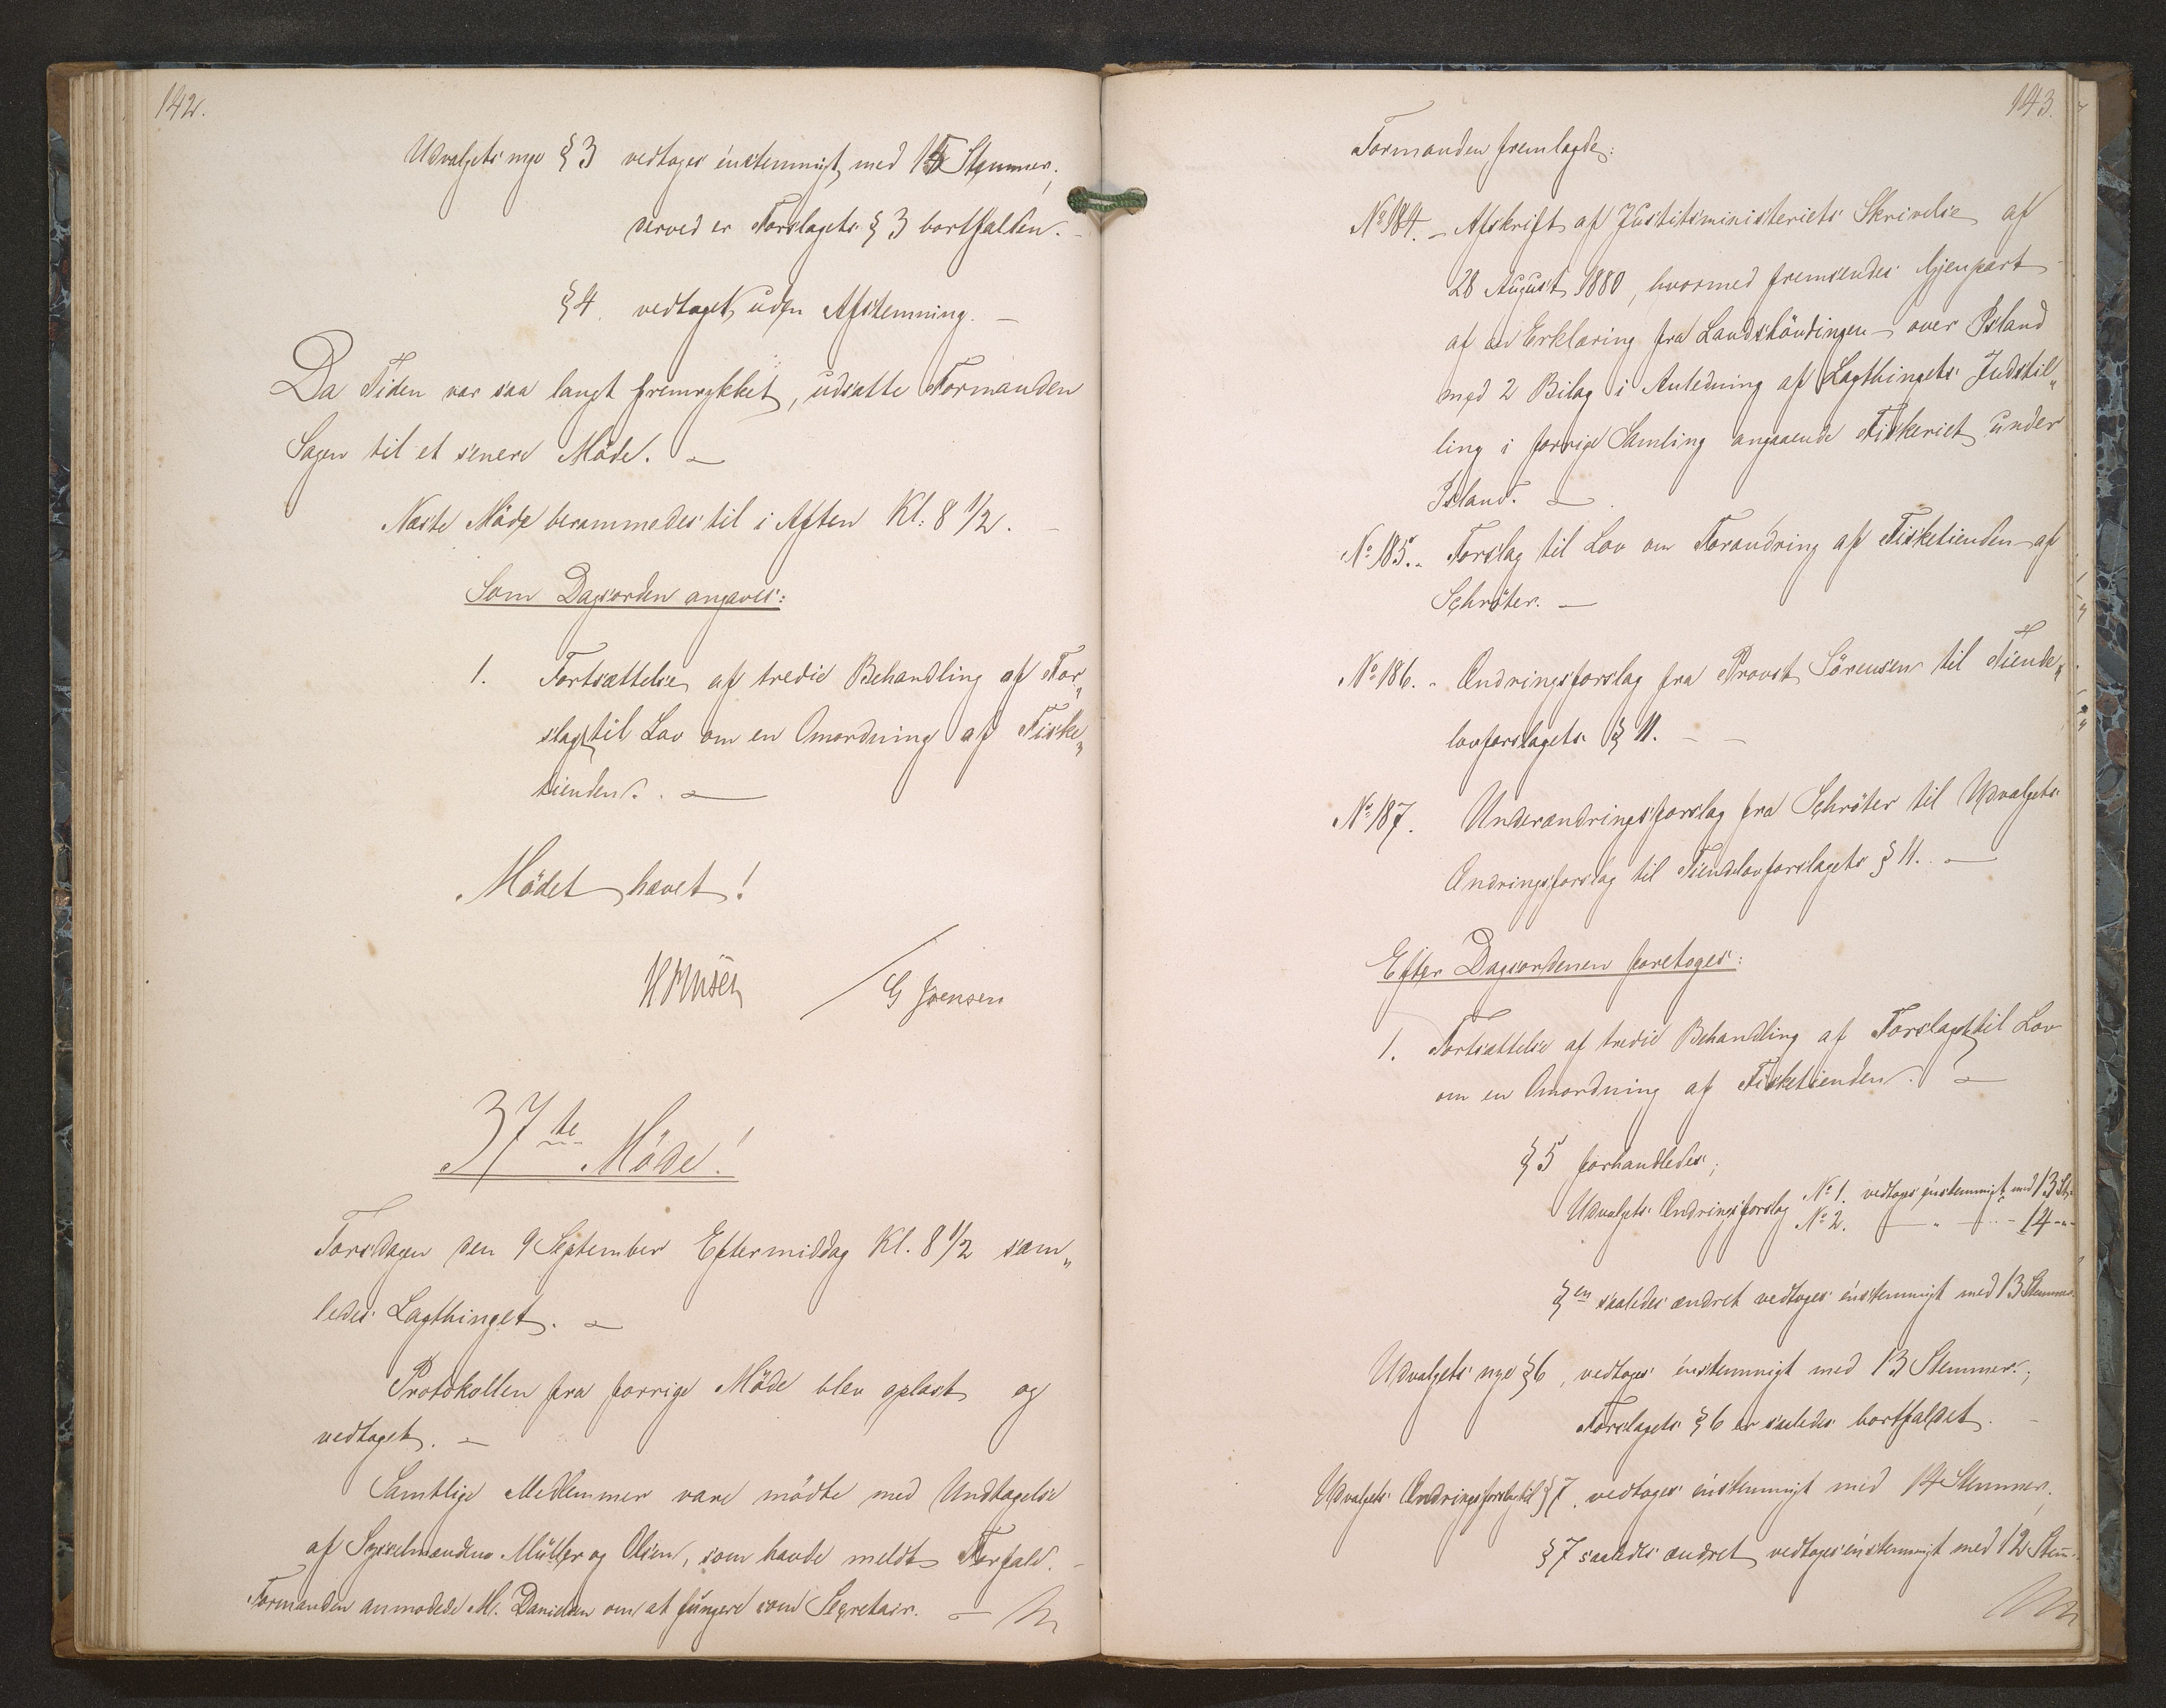 142.
Udvalgets nye § 3 vedtoges énstemmigt med 15 Stemmer;
derved er Forslagets § 3 bortfalden. -
§ 4. vedtaget uden Afstemning. -
Da Tiden var saa langt fremrykket, udsatte Formanden
Sagen til et senere Möde. -
Næste Möde berammedes til i Aften Kl. 8 1/2. -
Som Dagsorden angaves:
1. Fortsættelse af tredie Behandling af For„
slag til Lov om en Omordning af Fiske„
tienden. -
Mödet hævet!
/ G Joensen
37te Möde!
Torsdagen den 9 September Eftermiddag Kl. 8 1/2 sam„
ledes Lagthinget. -
Protokollen fra forrige Möde blev oplæst og
vedtaget. -
Samtlige Medlemmer vare mödte med Undtagelse
af Sysselmændene Müller og Olsen, som havde meldt Forfald. -
Formanden anmodede M. Danielsen om at fungere som Secretair. -
143.
Formanden fremlagde:
No 184. - Afskrift af Justitsministeriets Skrivelse af
28 August 1880, hvormed fremsendes Gjenpart
af en Erklæring fra Landshövdingen over Island
med 2 Bilag i Anledning af Lagthingets Indstil„
ling i forrige Samling angaaende Fiskeriet under
Island. -
No 185. - Forslag til Lov om Forandring af Fisketienden af
Schröter. -
No 186. - Ændringsforslag fra Provst Sörensen til Tiende„
lovforslagets § 11. - -
No 187. Underændringsforslag fra Schröter til Udvalgets
Ændringsforslag til Tiendelovforslagets § 11. -
Efter Dagsordenen foretoges:
1. Fortsættelse af tredie Behandling af Forslaget til Lov
om en Omordning af Fisketienden. -
§ 5 forhandledes;
Udvalgets Ændringsforslag No 1. vedtoges énstemmigt med 13 St.
No 2. - „ - - 14 - „ -
§en saaledes ændret vedtoges énstemmigt med 13 Stemmer.
Udvalgets nye § 6, vedtoges énstemmigt med 13 Stemmer;
Forslagets § 6 er saaledes bortfaldet. -
Udvalgets Ændringsforslag til § 7, vedtoges énstemmigt med 14 Stemmer,
§ 7 saaledes ændret vedtoges énstemmigt med 12 Stem.